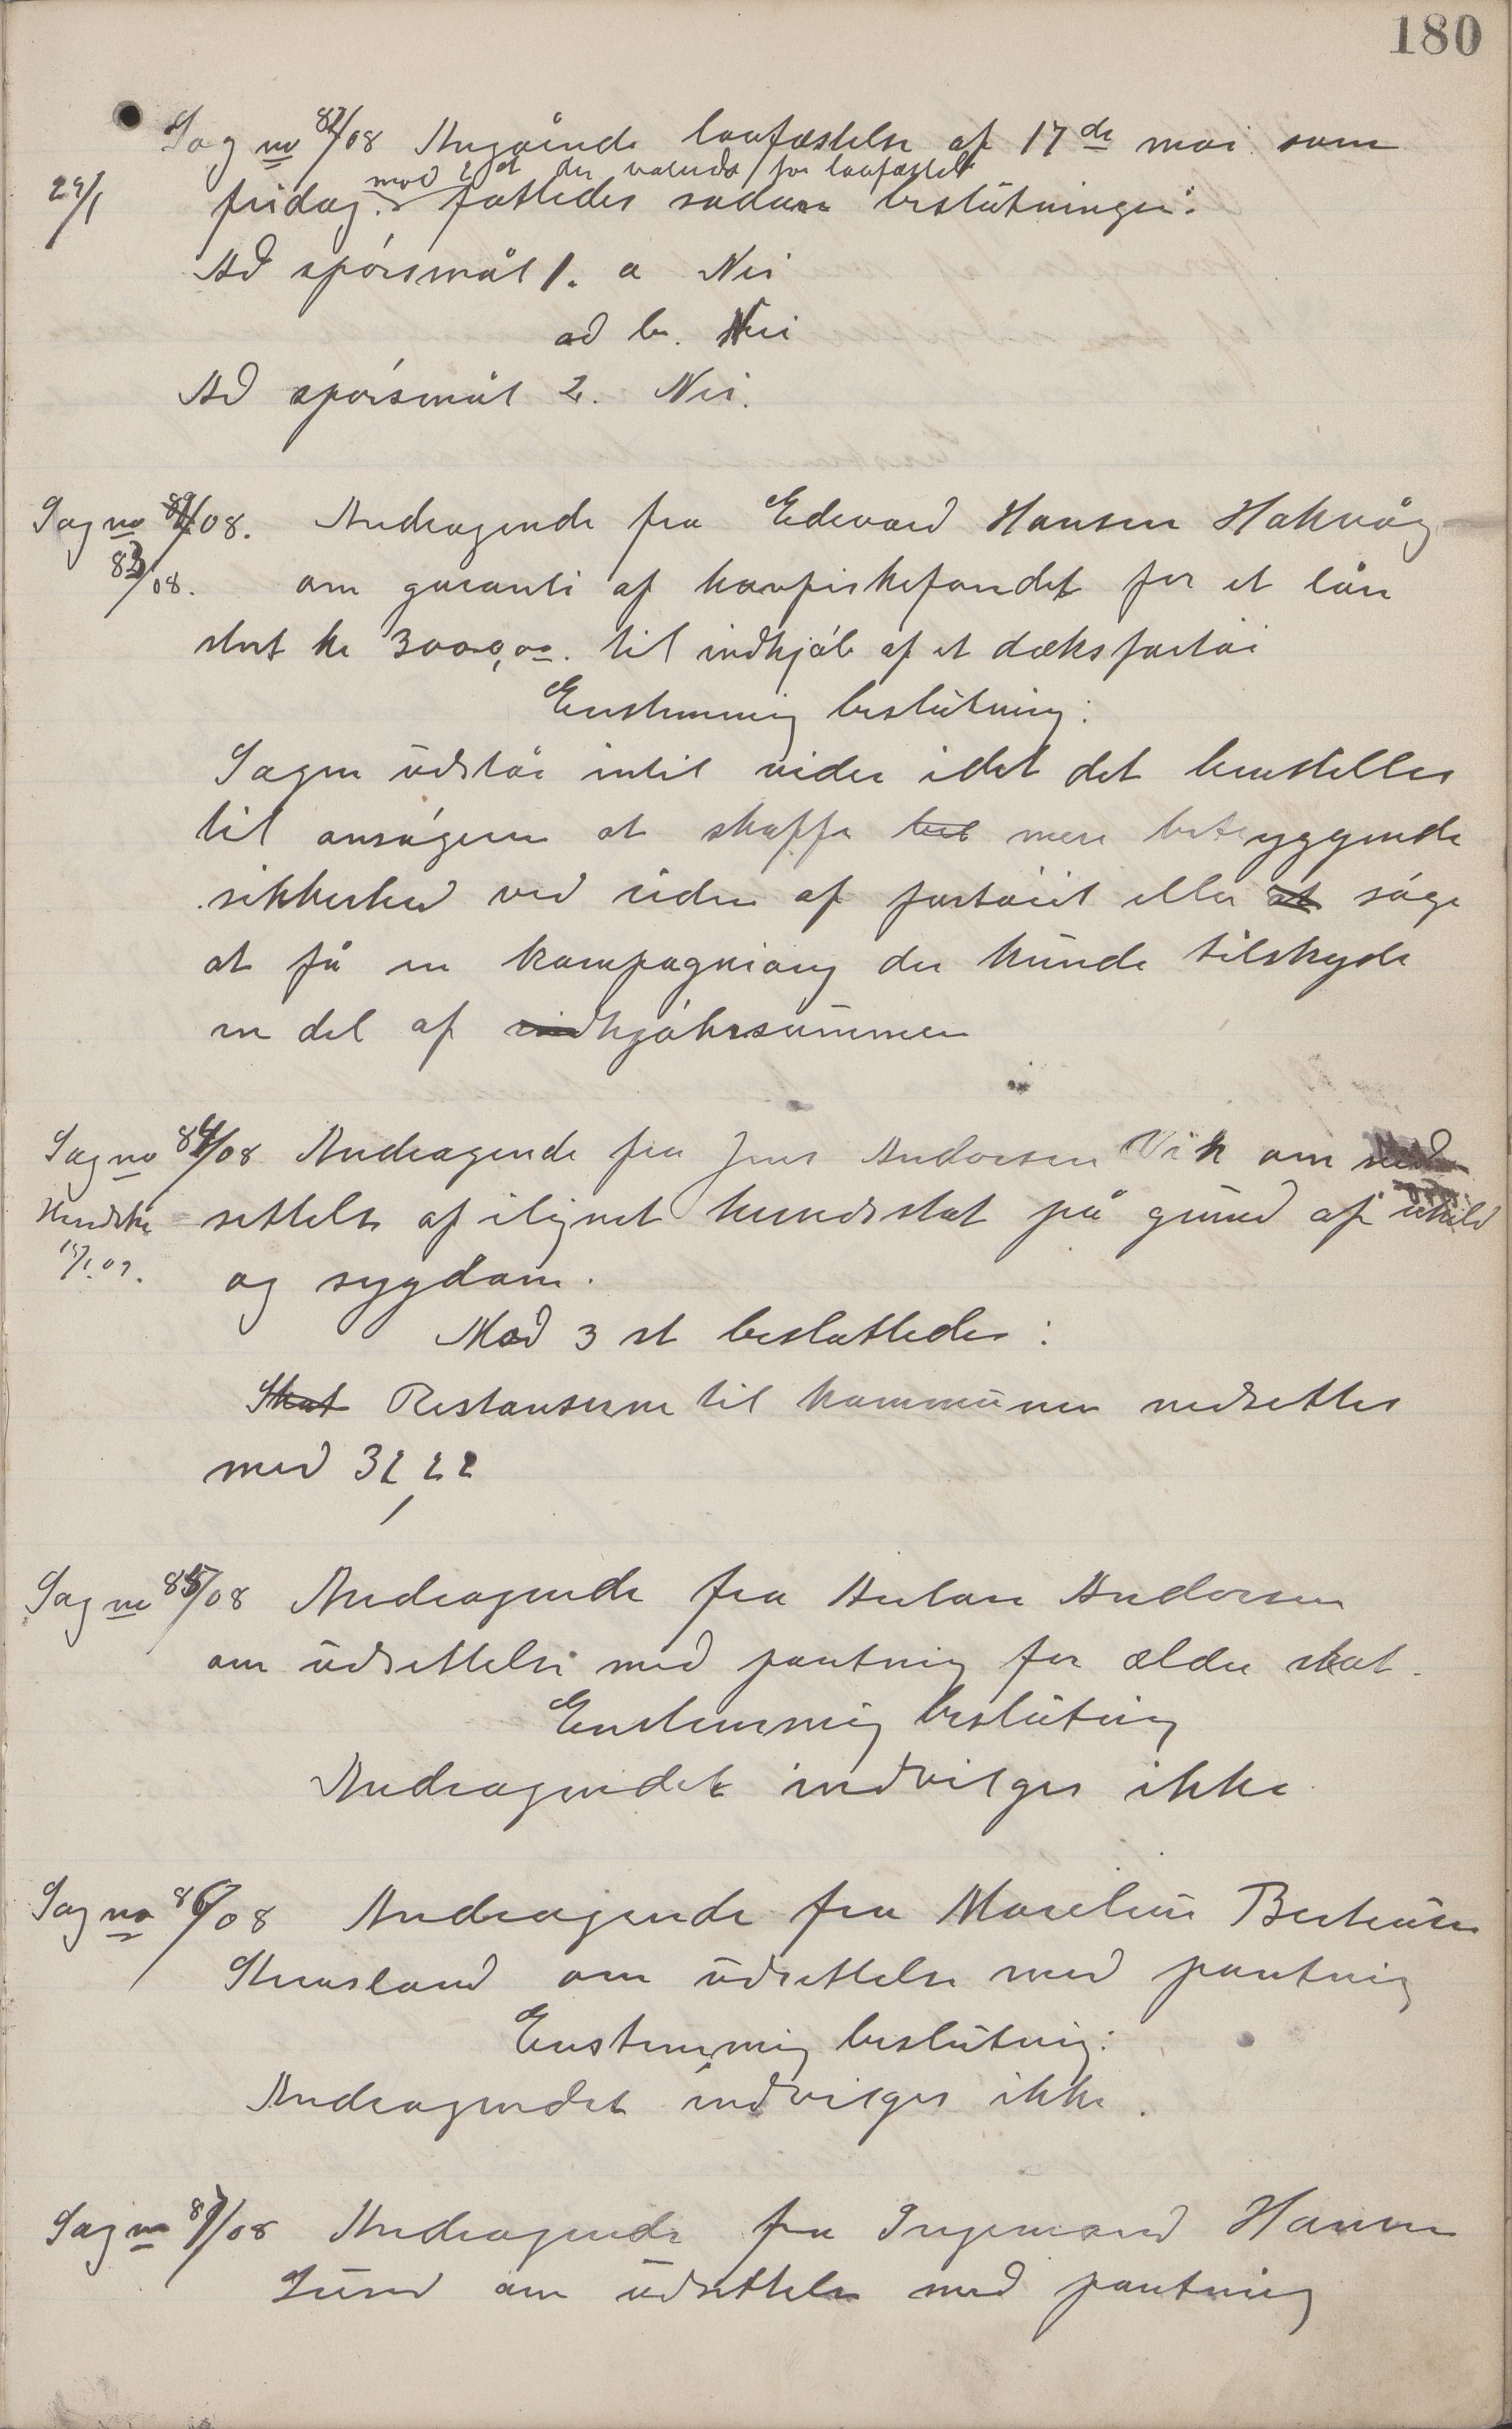 180
Sag no 82/08 Angående lovfæstelse af 17de mai som
mod 2 st der voterede for lovfæstelse
29/1 fridag. fattedes sådan beslutninger:
Ad spörsmål 1. a Nei
ad b. Nei
Ad spörsmål 2. Nei.
Sag no 08. Andragende fra Edevard Hansen Hakvåg
83/08. om garanti af havfiskefondet for et lån
stort kr 3000,00. til indkjöb af et dæksfartöi
Enstemmig beslutning:
Sagen udstår intil videre idet det henstilles
til ansögeren at skaffe mere betryggende
sikkerhed ved siden af fartöiet eller at söge
at få en kompagniong der kunde tilskyde
en del af indkjöbssummen
Sag no 84/08 Andragende fra Jens Andorsen Vik om ned
Utredskr settelse af ilignet kunedskat på grund af uheld
15/1.09. og sygdom.
Mod 3 st besluttedes:
Skat Restanserne til kommunen nedsettes
med 32,22
Sag no 85/08 Andragende fra Andorsen
om udsettelse med pantning for ældre skat.
Enstemmig beslutning
Andragendet indvilges ikke
Sag no 86/08 Andragende fra Marelius Berteusen
om udsettelse med pantning
Enstemmig beslutning:
Andragendet indvilges ikke.
Sag no 87/08 Andragende fra Ingemard Hansen
Sund om udsettelse med pantning